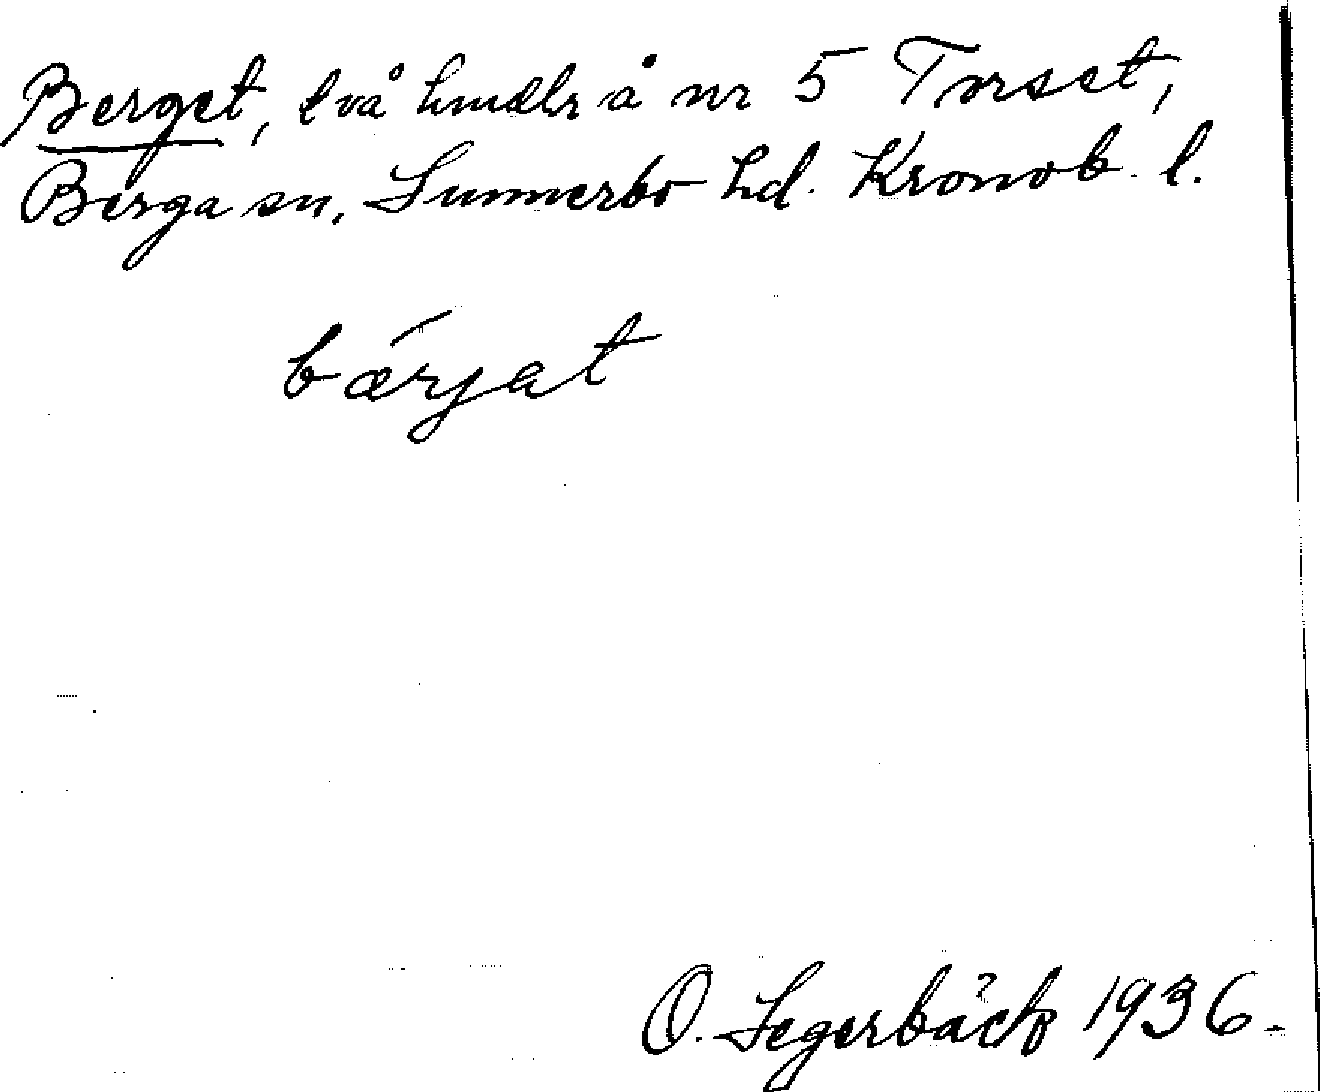 Berget, två hmdlr å nr 5 Torset,
Berga sn, Sunnerbo hd. Kronob. l.
bǽrjat
O. Segerbäck 1936.